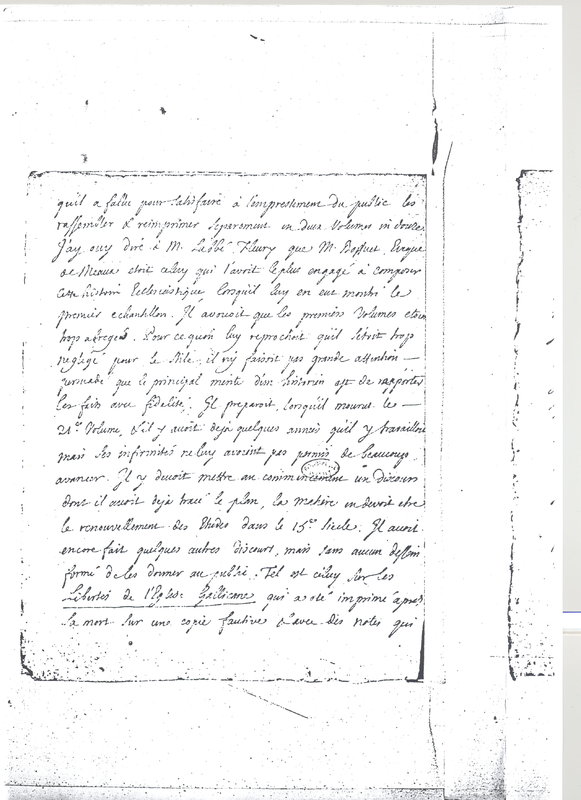 qu'il a fallu pour satisfaire à l'empressement du public les
rassembler & reimprimer separement en deux Volumes in douze.
J'ay ouy dire à M. l'abbé Fleury que M. Bossuet Eveque
de Meaux etoit celuy qui l'avoit le plus engagé à composer
cette histoire Ecclesiastique, lorsqu'il luy en eut montré le
premier echantillon. Il avouoit que les premiers Volumes etoien
trop abregés. Pour ce qu'on luy reprochoit qu'il s'étoit trop
negligé pour le stile, il n'y faisoit pas grande attention —
persuadé que le principal merite d'un historien est de rapporter
les faits avec fidelité. Il preparoit, lorsqu'il mourut le —
21e Volume, & il y avoit deja quelques années qu'il y travailloit
mais ses infirmités ne luy avoient pas permis de beaucoup
avancer. Il y devoit mettre au commencement un Discours
dont il avoit déja tracé le plan, la matiere en devoit etre
le renouvellement des Etudes dans le 15e Siecle. Il avoit
encore fait quelques autres discours, mais sans aucun dessein
formé de les donner au public. Tel est celuy sur les
Libertés de l'Eglise Gallicane qui a eté imprimé après
sa mort sur une copie fautive & avec des notes qui